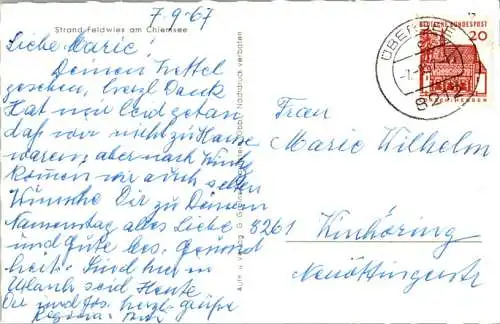 7.9.67
Strand Feldwies am Chiemsee
Liebe Marie!
Deinen Zettel
gesehen, herzl Dank
Hat mir leid getan
daß wir nicht zu Hause
waren, aber nach
kommen wir auch selten
Wünsche Dir zu Deinem
Namenstag alles Liebe
und Gute bes. Gesund
heit. Sind nur in
Urlaub seid Heute
herzl. Grüße
Regina
Nachdruck verboten
Aufn. u. Verlag G.
DEUTSCHE BUNDESPOST
20
8212
Frau
Marie Wilhelm
8261 Winhöring
Neuöttingerstr